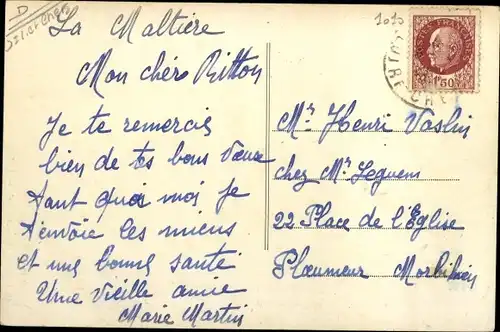 D
La Maltière
Mon chérs Ritton
Je te remercis
bien de tes bons vœux
tant quoi moi je
t'envoie les miens
et une bonne santé
Une vieille amie
Marie Martin
1010
1F50
LOIR
CHER
Mr Henri Vaslin
chez Mr Leguern
22 Place de l'Eglise
Plœumeur Morbihan